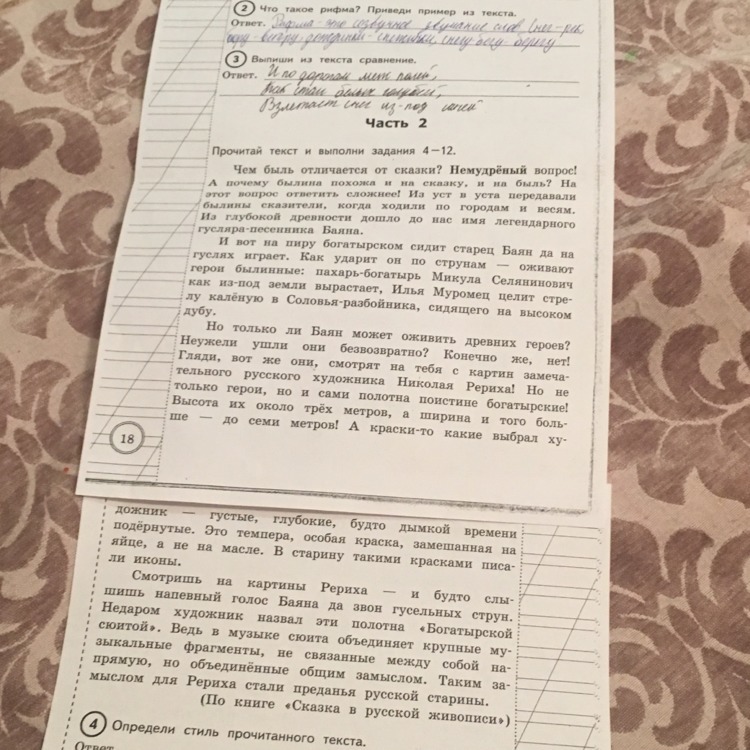 2 Что такое рифма? Приведи пример из текста.
Ответ. Рифма - это созвучное звучание слов (снег - рек
снегу бегу - берегу
3 Выпиши из текста сравнение.
Ответ. И по дорогам меж полей,
Как стаи белых голубей,
Взлетает снег из-под саней
Часть 2
Прочитай текст и выполни задания 4—12.
Чем быль отличается от сказки? Немудрёный вопрос!
А почему былина похожа и на сказку, и на быль? На
этот вопрос ответить сложнее! Из уст в уста передавали
былины сказители, когда ходили по городам и весям.
Из глубокой древности дошло до нас имя легендарного
гусляра-песенника Баяна.
И вот на пиру богатырском сидит старец Баян да на
гуслях играет. Как ударит он по струнам — оживают
герои былинные: пахарь-богатырь Микула Селянинович
как из-под земли вырастает, Илья Муромец целит стре-
лу калёную в Соловья-разбойника, сидящего на высоком
дубу.
Но только ли Баян может оживить древних героев?
Неужели ушли они безвозвратно? Конечно же, нет!
Гляди, вот же они, смотрят на тебя с картин замеча-
тельного русского художника Николая Рериха! Но не
только герои, но и сами полотна поистине богатырские!
Высота их около трёх метров, а ширина и того боль-
ше — до семи метров! А краски-то какие выбрал ху-
18
дожник — густые, глубокие, будто дымкой времени
подёрнутые. Это темпера, особая краска, замешанная на
яйце, а не на масле. В старину такими красками писа-
ли иконы.
Смотришь на картины Рериха — и будто слы-
шишь напевный голос Баяна да звон гусельных струн.
Недаром художник назвал эти полотна «Богатырской
сюитой». Ведь в музыке сюита объединяет крупные му-
зыкальные фрагменты, не связанные между собой на-
прямую, но объединённые общим замыслом. Таким за-
мыслом для Рериха стали преданья русской старины.
(По книге «Сказка в русской живописи»)
4 Определи стиль прочитанного текста.
Ответ.